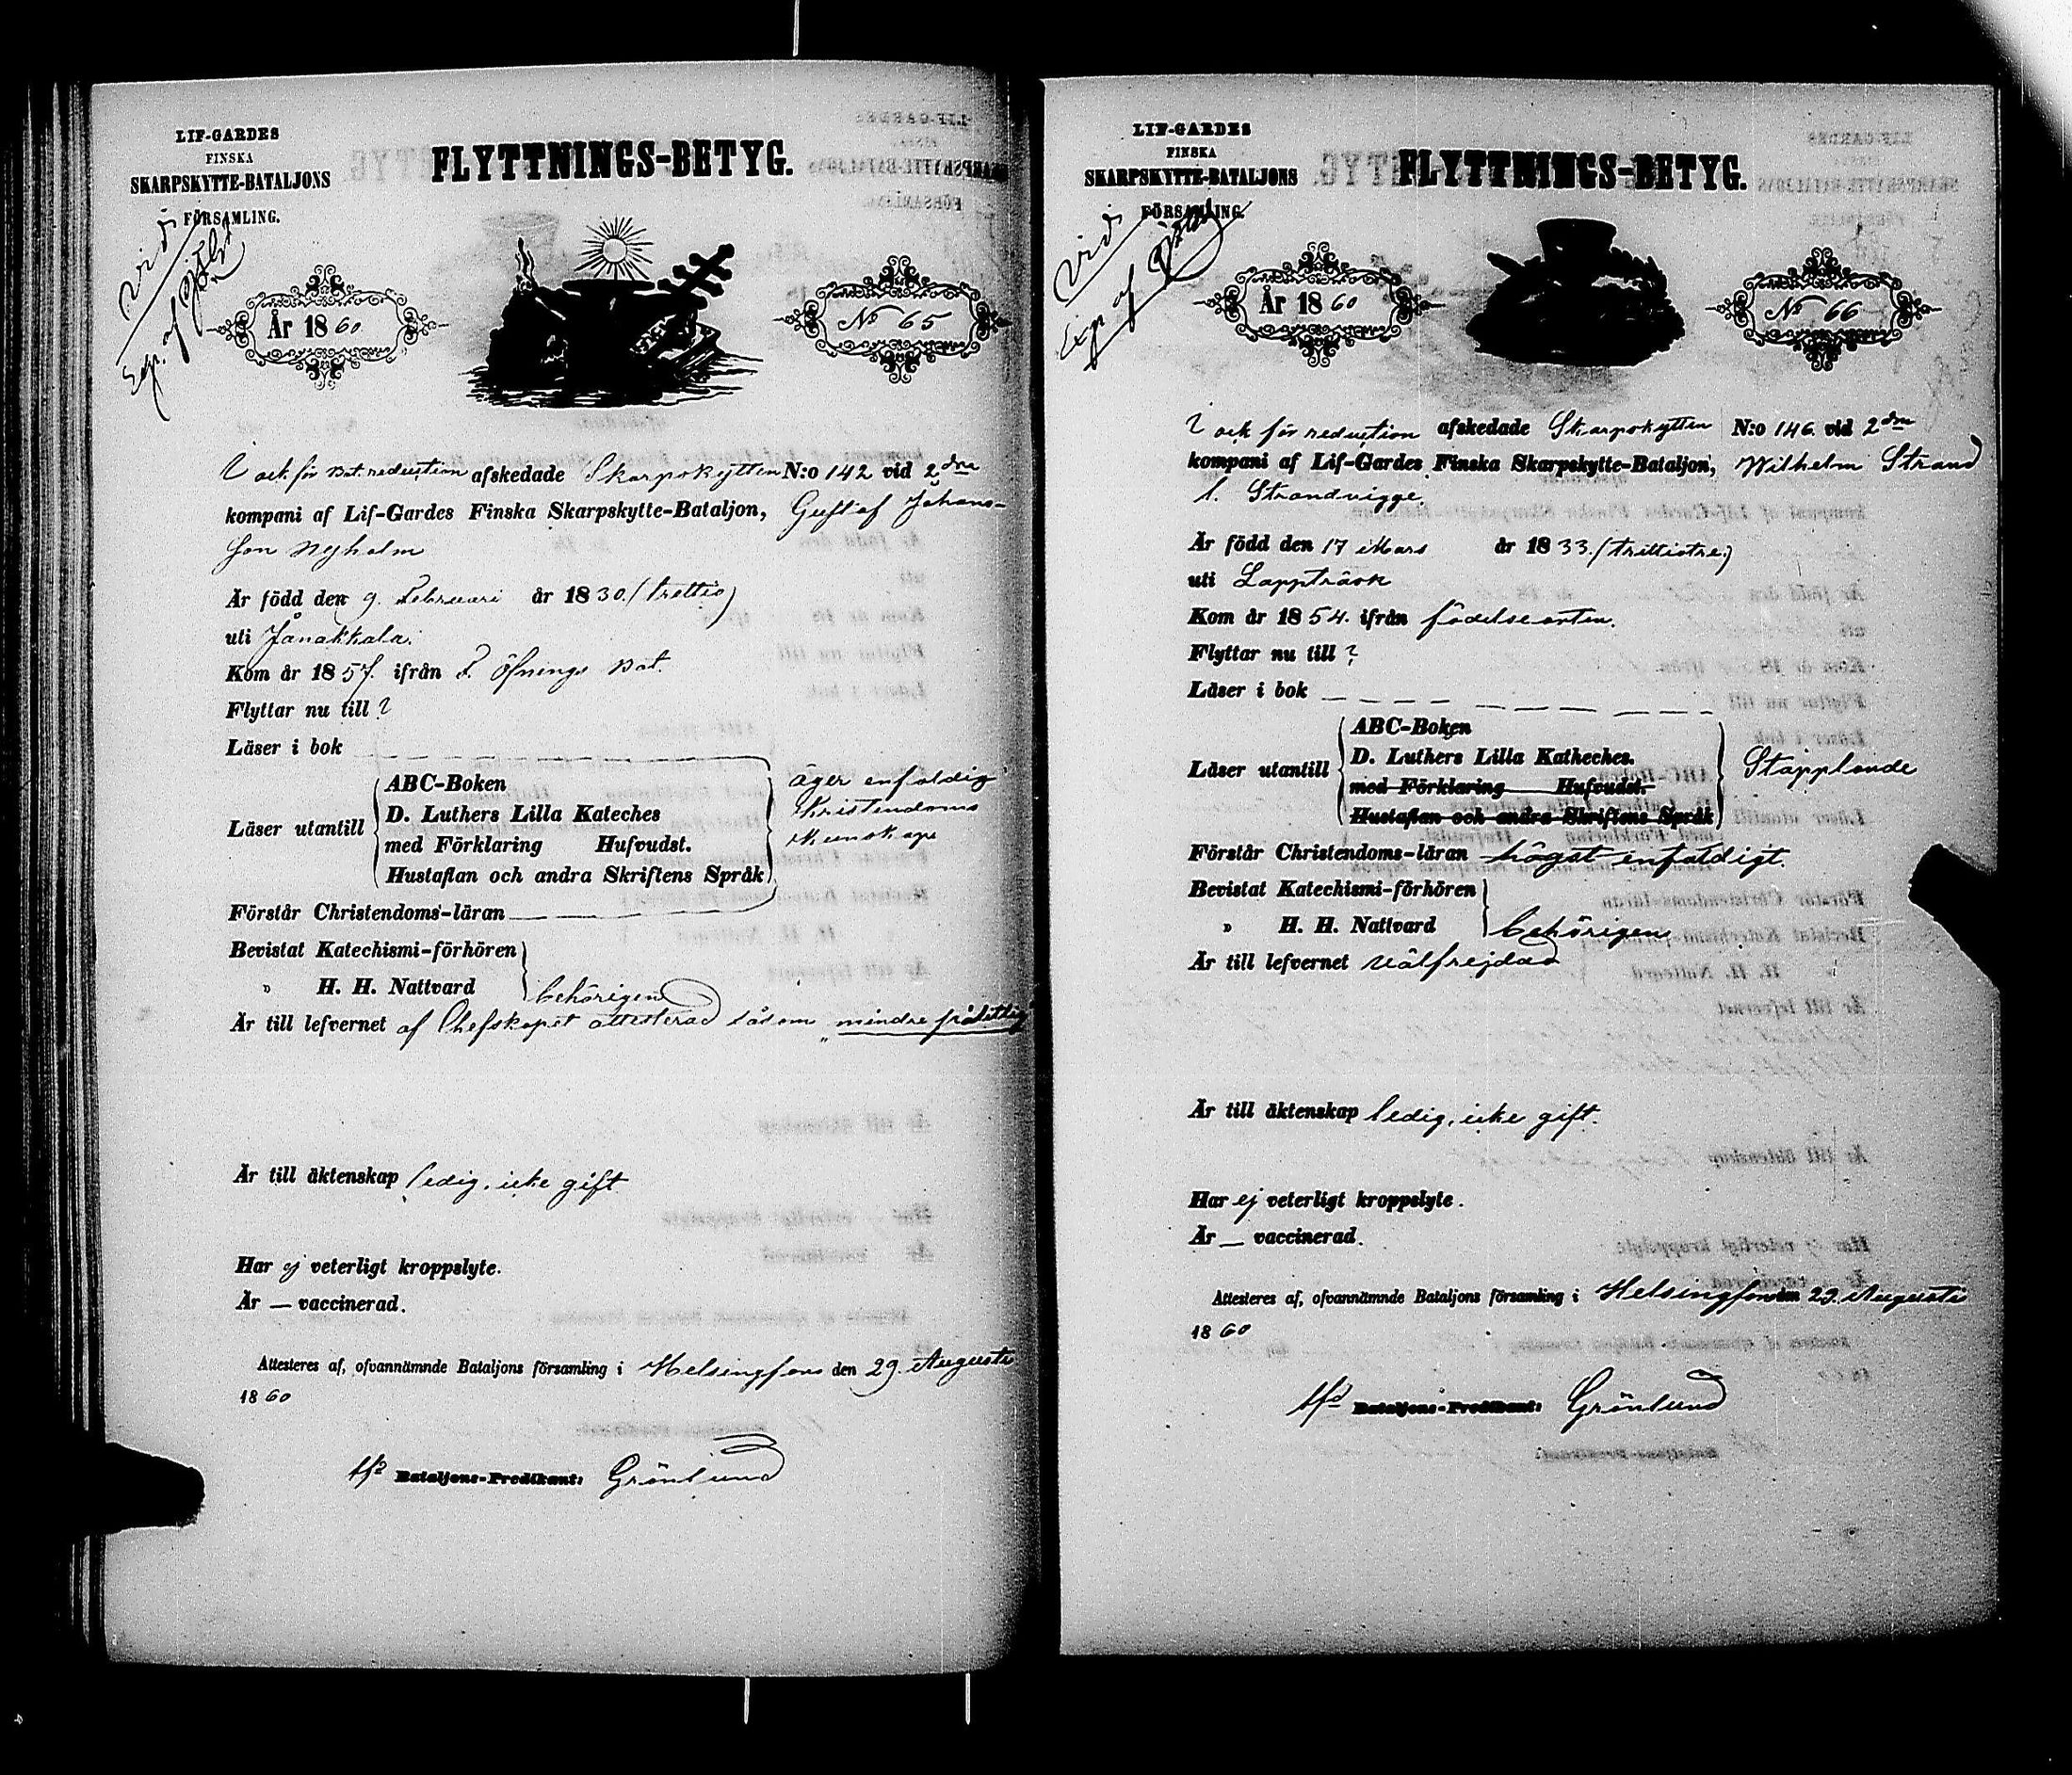 LIF-GARDES
FINSKA
SKARPSKYTTE-BATALJONS
FÖRSAMLING.
FLYTTNINGS-BETYG.
Vidi
År 1860
No 65
och för Bat. reduction afskedade Skarpskytten N:o 142 vid 2dra
kompani af Lif-Gardes Finska Skarpskytte-Bataljon, Gustaf Johans-
son Nyholm
Är född den 9. Februari år 1830. (trettio)
uti Janakkala.
Kom år 1857. ifrån F. Öfnings Bat.
Flyttar nu till ?
Läser i bok
Läser utantill
ABC-Boken
D. Luthers Lilla Kateches
med Förklaring Hufvudst.
Hustaflan och andra Skriftens Språk
äger enfaldig
Kristendoms
kunskap
Förstår Christendoms-läran
Bevistat Katechismi-förhören
" H. H. Nattvard
behörigen
Är till lefvernet af Chefskapet attesterad såsom „mindre pålitlig
Är till äktenskap ledig, icke gift
Har ej veterligt kroppslyte.
Är — vaccinerad.
Attesteres af, ofvannämnde Bataljons församling i Helsingfors den 29. Augusti
1860
Bataljons-Predikant: Grönlund
LIF-GARDES
FINSKA
SKARPSKYTTE-BATALJONS
FÖRSAMLING.
FLYTTNINGS-BETYG.
Vidi
År 1860
No 66
och för reduction afskedade Skarpskytten N:o 146. vid 2dra
kompani af Lif-Gardes Finska Skarpskytte-Bataljon, Wilhelm Strand
l. Strandvigge.
Är född den 17 Mars år 1833. (trittiotre.)
uti Lappträsk
Kom år 1854. ifrån födelseorten.
Flyttar nu till ?
Läser i bok
Läser utantill
ABC-Boken
D. Luthers Lilla Katheches.
med Förklaring Hufvudst.
Hustaflan och andra Skriftens Språk
Stapplande
Förstår Christendoms-läran högst enfaldigt.
Bevistat Katechismi-förhören
" H. H. Nattvard
behörigen
Är till lefvernet välfrejdad
Är till äktenskap ledig, icke gift.
Har ej veterligt kroppslyte.
Är — vaccinerad.
Attesteres af, ofvannämnde Bataljons församling i Helsingfors den 29. Augusti
1860
Bataljons-Predikant: Grönlund